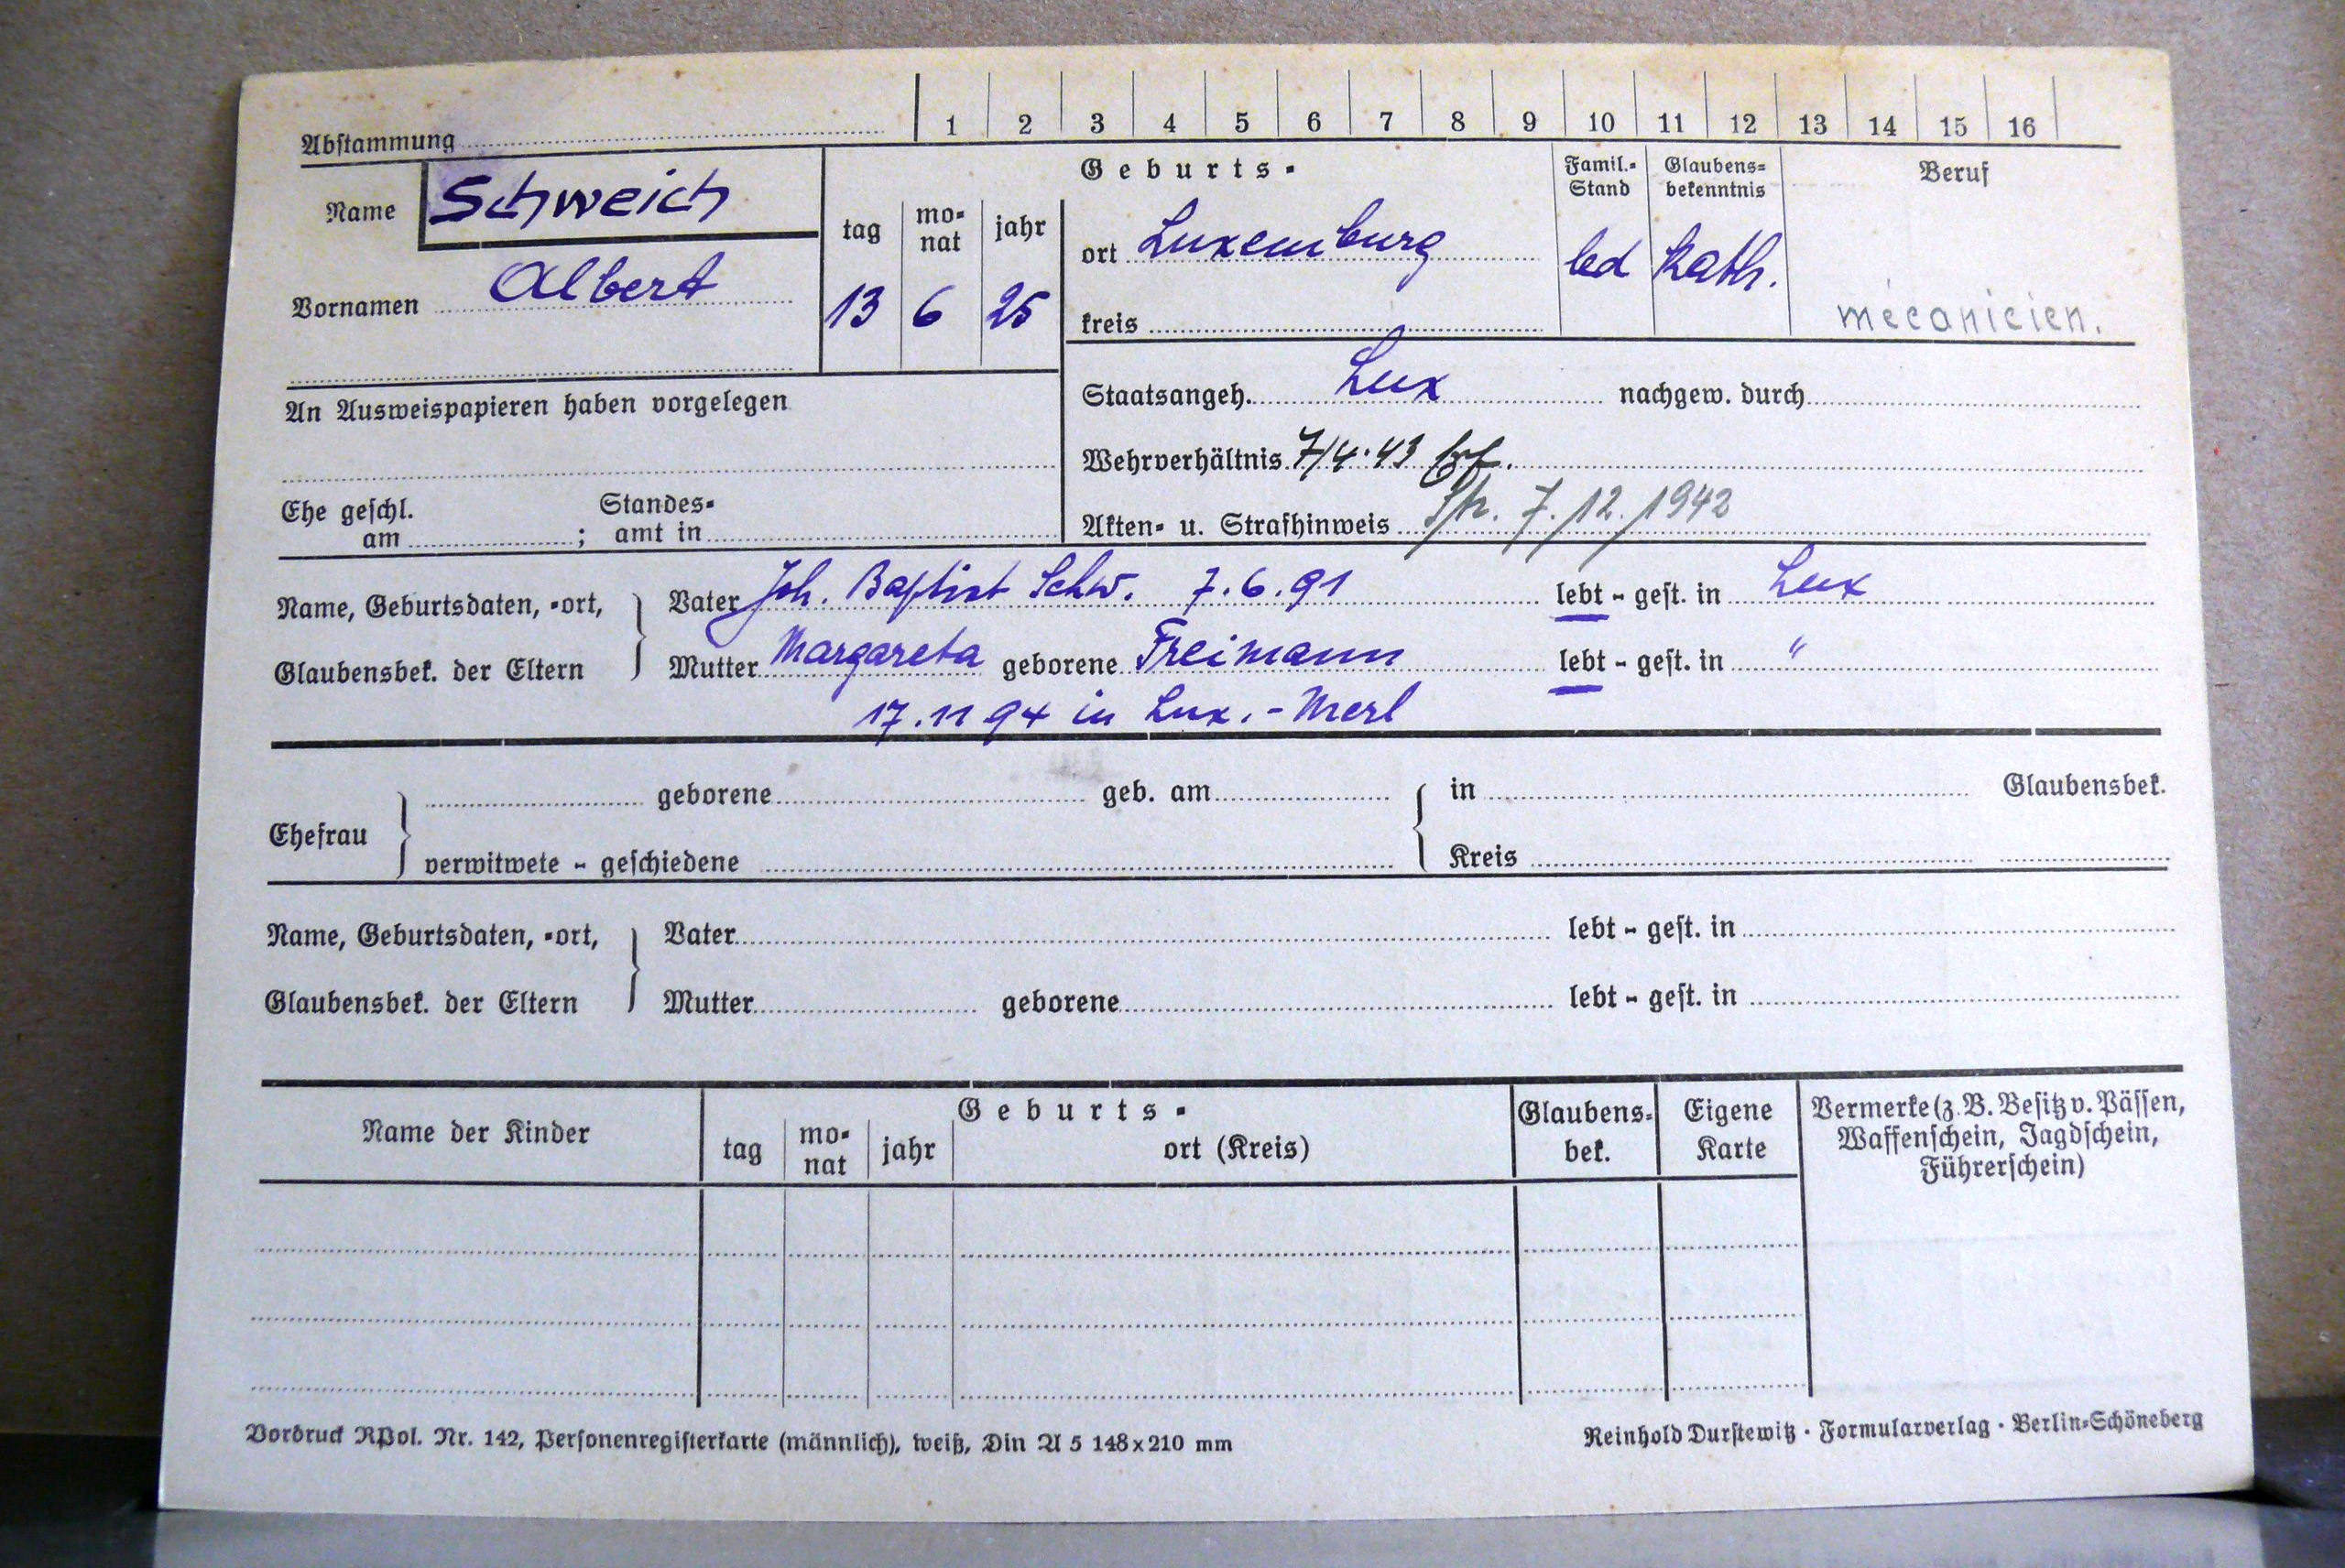 Abstammung 1 2 3 4 5 6 7 8 9 10 11 12 13 14 15 16
Name Schweich
Vornamen Albert
Geburts-
tag mo-nat jahr
13 6 25
ort Luxemburg
kreis
Famil.-Stand
led
Glaubens-bekenntnis
Kath.
Beruf
mécanicien.
An Ausweispapieren haben vorgelegen
Staatsangeh. Lux nachgew. durch
Wehrverhältnis 7/4.43
Ehe geschl. am ; Standes-amt in
Akten- u. Strafhinweis 7./12./1942
Name, Geburtsdaten, -ort,
Glaubensbek. der Eltern
Vater Joh. Baptist Schw. 7.6.91 lebt - gest. in Lux
Mutter Margareta geborene Freimann lebt - gest. in "
17.11 94 in Lux.-Merl
Ehefrau
geborene geb. am in Glaubensbek.
verwitwete - geschiedene Kreis
Name, Geburtsdaten, -ort,
Glaubensbek. der Eltern
Vater lebt - gest. in
Mutter geborene lebt - gest. in
Name der Kinder
Geburts-
tag mo-nat jahr ort (Kreis)
Glaubens-bek.
Eigene Karte
Vermerke (z. B. Besitz v. Pässen,
Waffenschein, Jagdschein,
Führerschein)
Vordruck RPol. Nr. 142, Personenregisterkarte (männlich), weiß, Din A 5 148x210 mm
Reinhold Durstewitz · Formularverlag · Berlin-Schöneberg